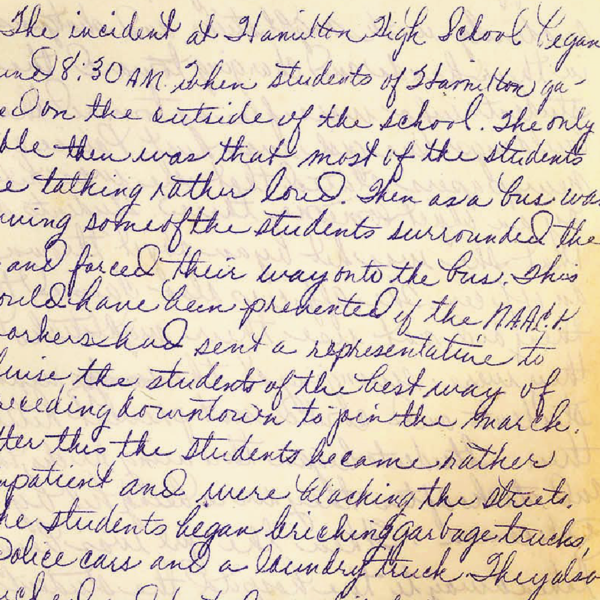 The incident at Hamilton High School began
und 8:30 AM when students of Hamilton ga-
ed on the outside of the school. The only
ble then was that most of the students
e talking rather loud. Then as a bus was
iving some of the students surrounded the
and forced their way onto the bus. This
ould have been prevented if the NAACP
workers had sent a representative to
dvise the students of the best way of
receeding downtown to join the march.
fter this the students became rather
mpatient and were blocking the streets.
he students began bricking garbage trucks,
Police cars and a laundry truck They also